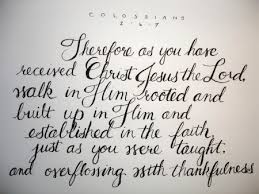 COLOSSIANS
2.6.7
Therefore as you have
received Christ Jesus the Lord,
walk in Him, rooted and
built up in Him and
established in the faith,
just as you were taught,
and overflowing with thankfulness